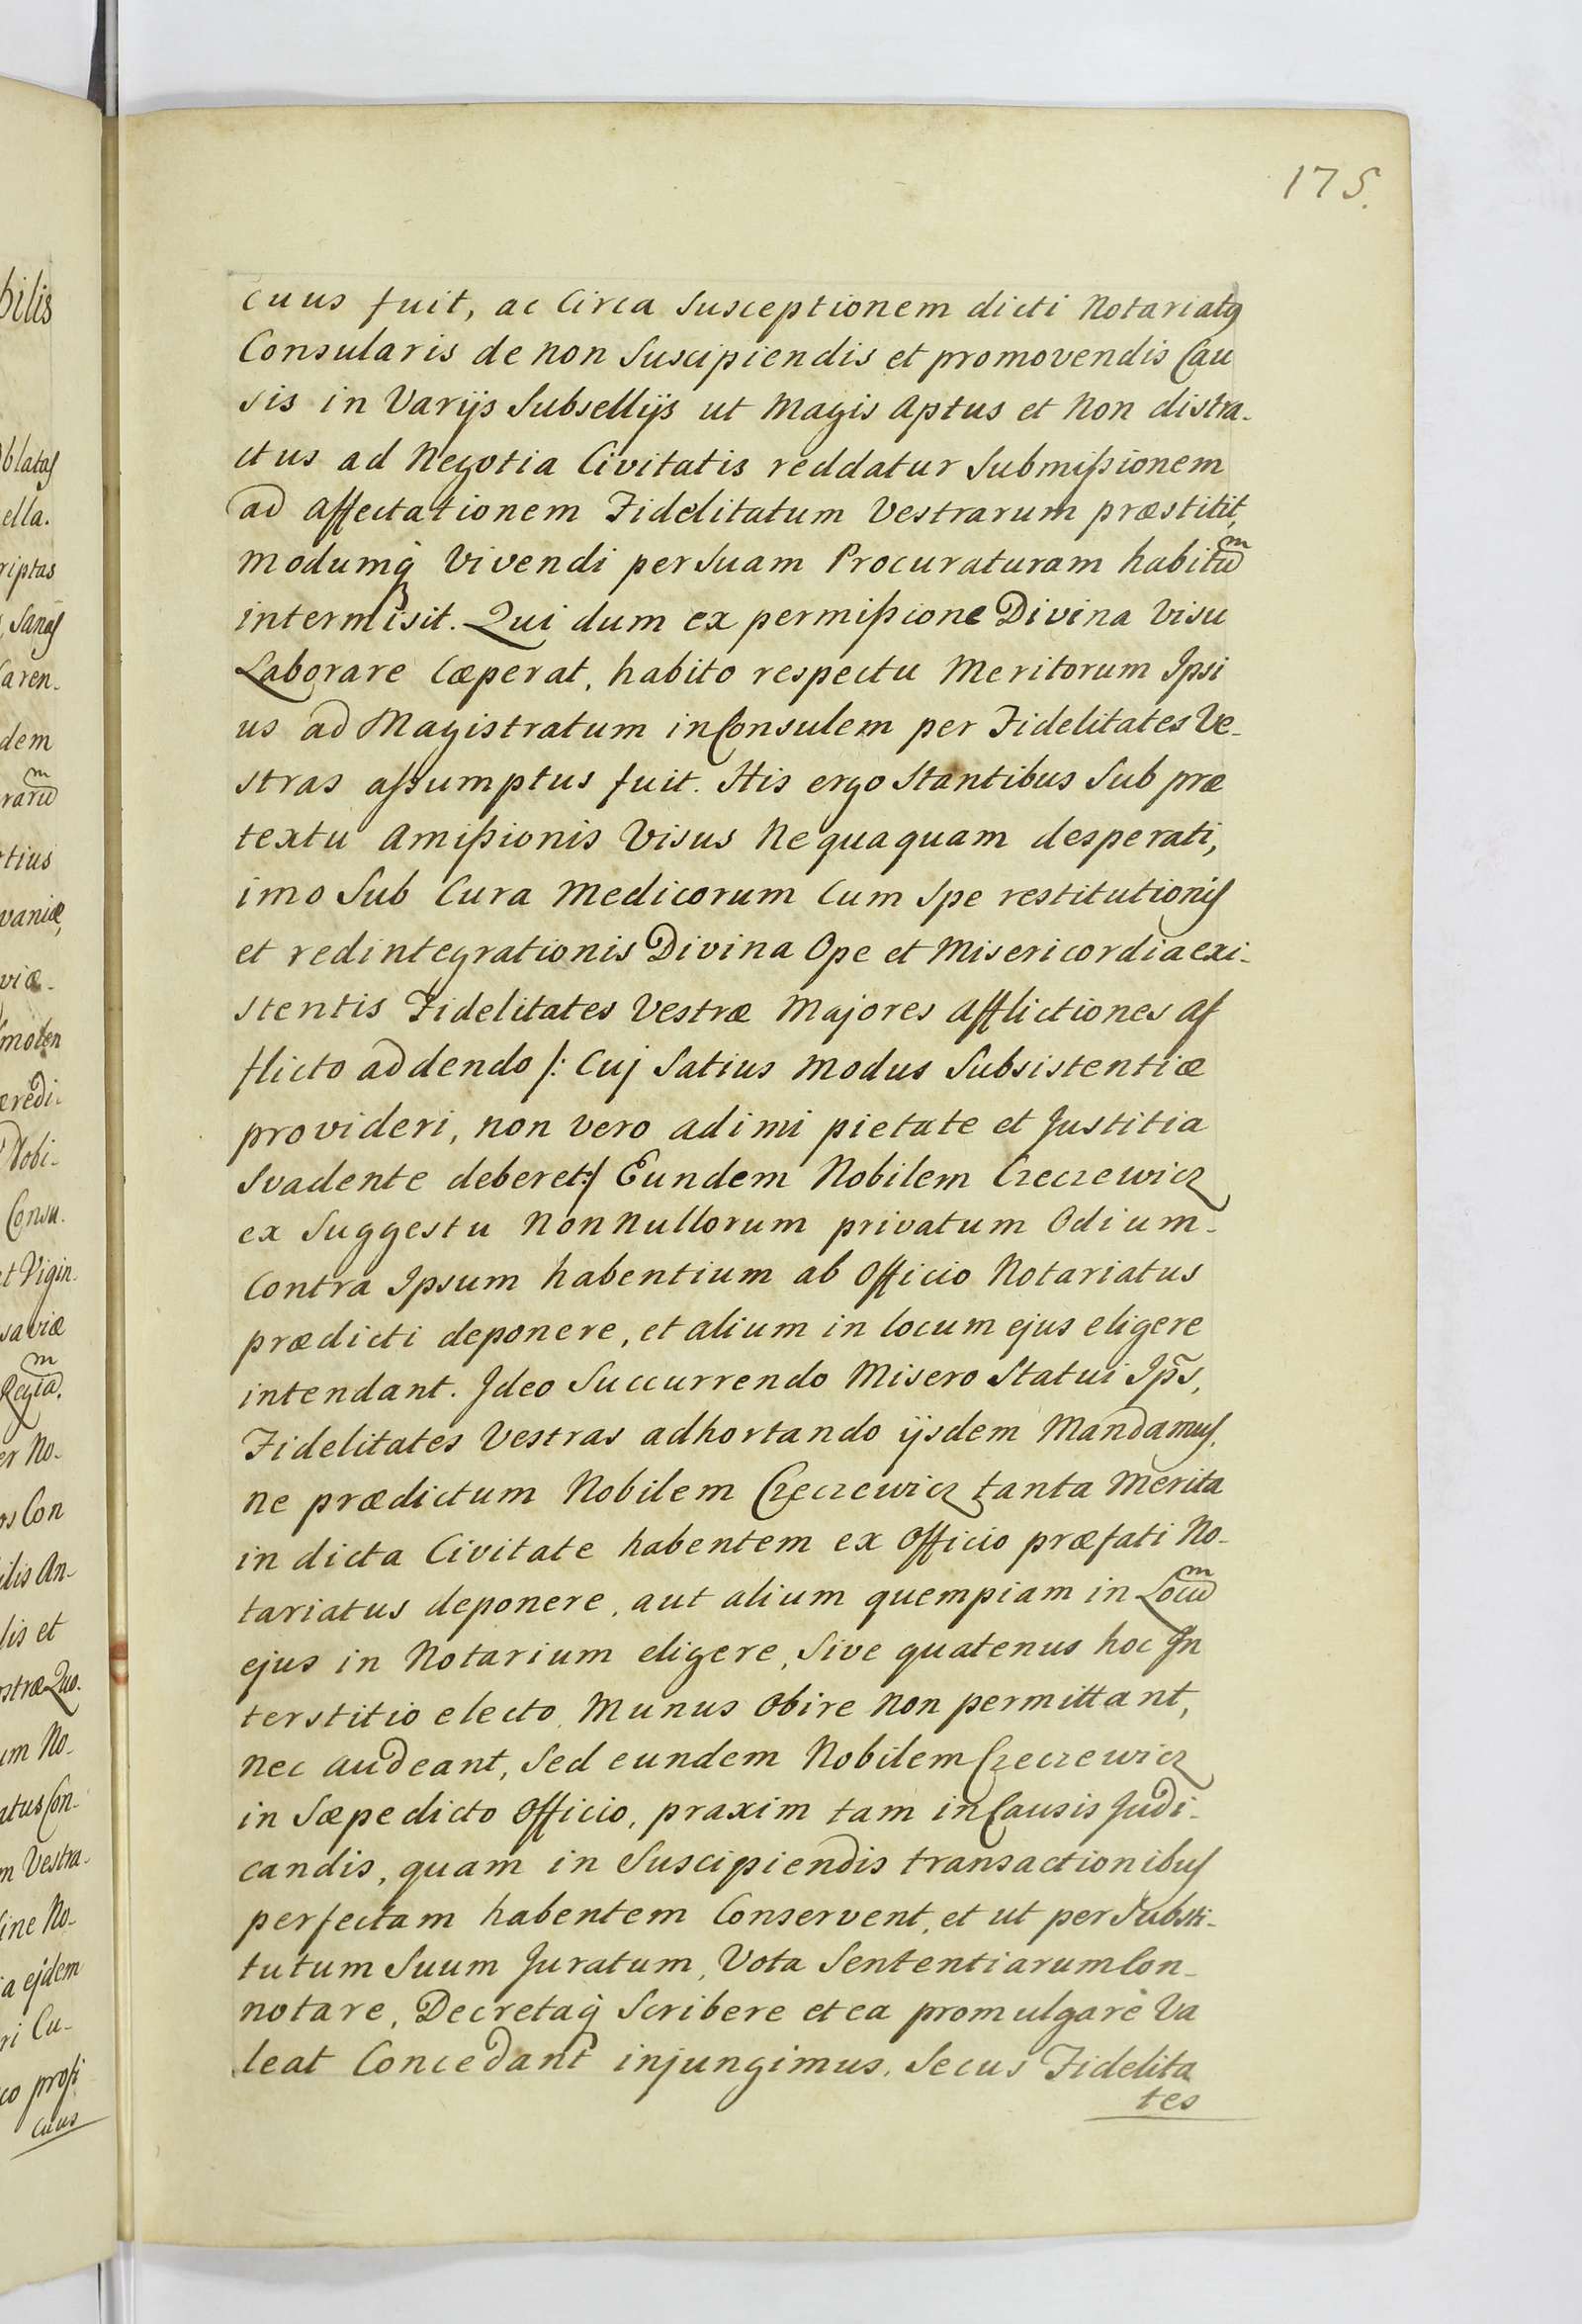 175.
cuus fuit, ac Circa Susceptionem dicti Notariatq
Consularis de non Suscipiendis et promovendis Cau
sis in Varijs Subsellijs ut Magis Aptus et Non distra-
ctus ad Negotia Civitatis reddatur Submißionem
ad Affectationem Fidelitatum Vestrarum præstitit,
Modumq Vivendi per Suam Procuraturam habitũm
intermisit. Qui dum ex permißione Divina Visu
Laborare Cæperat, habito respectu Meritorum Ipsi
us ad Magistratum in Consulem per Fidelitates Ve-
stras aßumptus fuit. His ergo Stantibus Sub præ
textu Amißionis Visus Nequaquam desperati,
imo Sub Cura Medicorum Cum Spe restitutionis
et redintegrationis Divina Ope et Misericordia exi-
stentis Fidelitates Vestræ Majores Afflictiones Af
flicto addendo /: Cuj Satius Modus Subsistentiæ
provideri, non vero adimi pietate et Justitia
Svadente deberet:/ Eundem Nobilem Czeczewicz
ex Suggestu Nonnullorum privatum Odium-
Contra Ipsum habentium ab Officio Notariatus
prædicti deponere, et alium in locum ejus eligere
intendant. Ideo Succurrendo Misero Statui Ip̃s,
Fidelitates Vestras adhortando ijsdem Mandamus,
ne prædictum Nobilem Czeczewicz tanta Merita
in dicta Civitate habentem ex Officio præfati No-
tariatus deponere, aut alium quempiam in Locũm
ejus in Notarium eligere, Sive quatenus hoc In
terstitio electo Munus Obire Non permittant,
Nec audeant, Sed eundem Nobilem Czeczewicz
in Sæpedicto Officio, praxim tam in Causis Judi-
candis, quam in Suscipiendis transactionibus
perfectam habentem Conservent, et ut per Substi-
tutum Suum Juratum, Vota Sententiarum Con-
notare, Decretaq Scribere et ea promulgare Va
leat Concedant injungimus. Secus Fidelita
tes
bilis
Oblatas
ella.
riptas
Sanas
aren-
dem
rarũm
tius
vaniæ,
viæ-
Smolen
æredi-
Nobi-
Consu-
et Vigin-
saviæ
Regiam.
er No-
os Con
ilis An-
lis et
stræ Quo-
um No-
atus Con-
m Vestra-
ine No-
a ejdem
ri Cu-
co profi
cuus